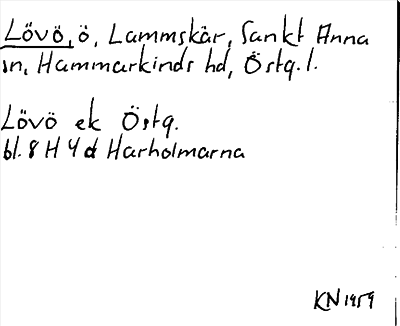 Lövö, ö, Lammskär, Sankt Anna
sn, Hammarkinds hd, Östg. l.
Lövö ek Östg.
bl. 8 H 4 d Harholmarna
KN 1959